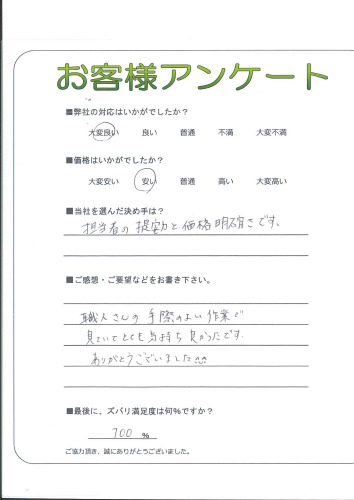 お客様アンケート
■弊社の対応はいかがでしたか？
大変良い 良い 普通 不満 大変不満
■価格はいかがでしたか？
大変安い 安い 普通 高い 大変高い
■当社を選んだ決め手は？
担当者の提案力と価格明確さです。
■ご感想・ご要望などをお書き下さい。
職人さんの手際のよい作業で
見ていてとても気持ち良かったです。
ありがとうございました
■最後に、ズバリ満足度は何%ですか？
100 %
ご協力頂き、誠にありがとうございました。